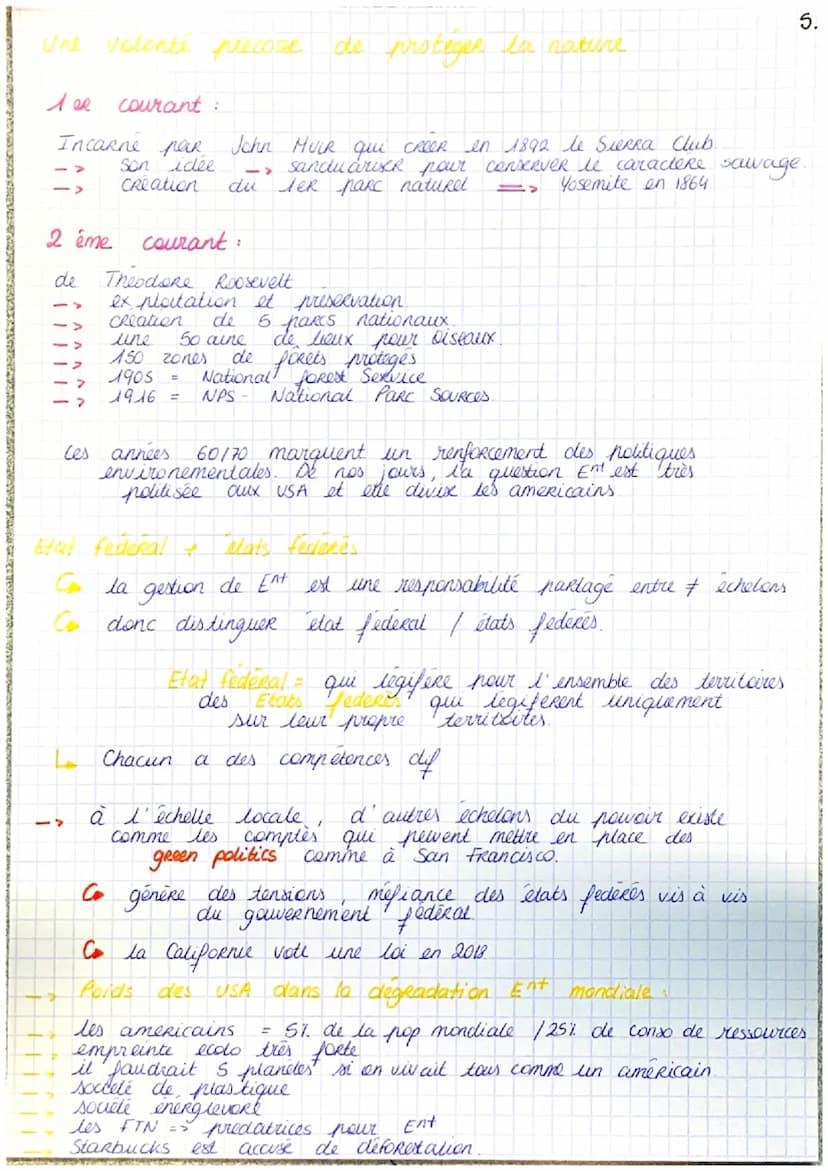 5.
Une volonté precose de protéger la nature
1er courant :
Incarné par John Muir qui créer en 1892 le Sierra Club.
-> son idée -> sanctuariser pour conserver le caractère sauvage.
-> création du 1er parc naturel => Yosemite en 1864
2 éme courant :
de Théodore Roosevelt
-> exploitation et préservation
-> création de 5 parcs nationaux
-> une 50aine de lieux pour oiseaux.
-> 150 zones de forêts protégés
-> 1905 = National Forest Service
-> 1916 = NPS - National Parc Sources.
Les années 60/70 marquent un renforcement des politiques
environementales. De nos jours, la question Ent est très
politisée aux USA et elle divise les américains
Etat fédéral + états fédérés
la gestion de Ent est une responsabilité partagé entre ≠ échelons
donc distinguer état fédéral / états fédérés.
Etat fédéral = qui légifère pour l'ensemble des territoires
des Etats fédérés qui légifèrent uniquement
sur leur propre territoires.
Chacun a des compétences dif
-> à l'échelle locale, d'autres échelons du pouvoir existe
comme les comptés qui peuvent mettre en place des
green politics comme à San Francisco.
génère des tensions, méfiance des états fédérés vis à vis
du gouvernement fédéral
la Californie vote une loi en 2018
-> Poids des USA dans la dégradation Ent mondiale :
-> les américains = 5% de la pop mondiale / 25% de conso de ressources
-> empreinte écolo très forte
-> il faudrait 5 planètes si on vivait tous comme un américain
-> société de plastique
-> société énergievore
-> les FTN => prédatrices pour Ent
-> Starbucks est accusé de déforestation.